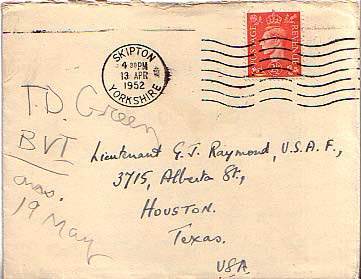 SKIPTON
4 30PM
13 APR
1952
YORKSHIRE
POSTAGE REVENUE
T.D. Green
BVI
ans.
19 May
Lieutenant G.J. Raymond, U.S.A.F.,
3715, Alberta St.,
HOUSTON.
Texas.
USA.